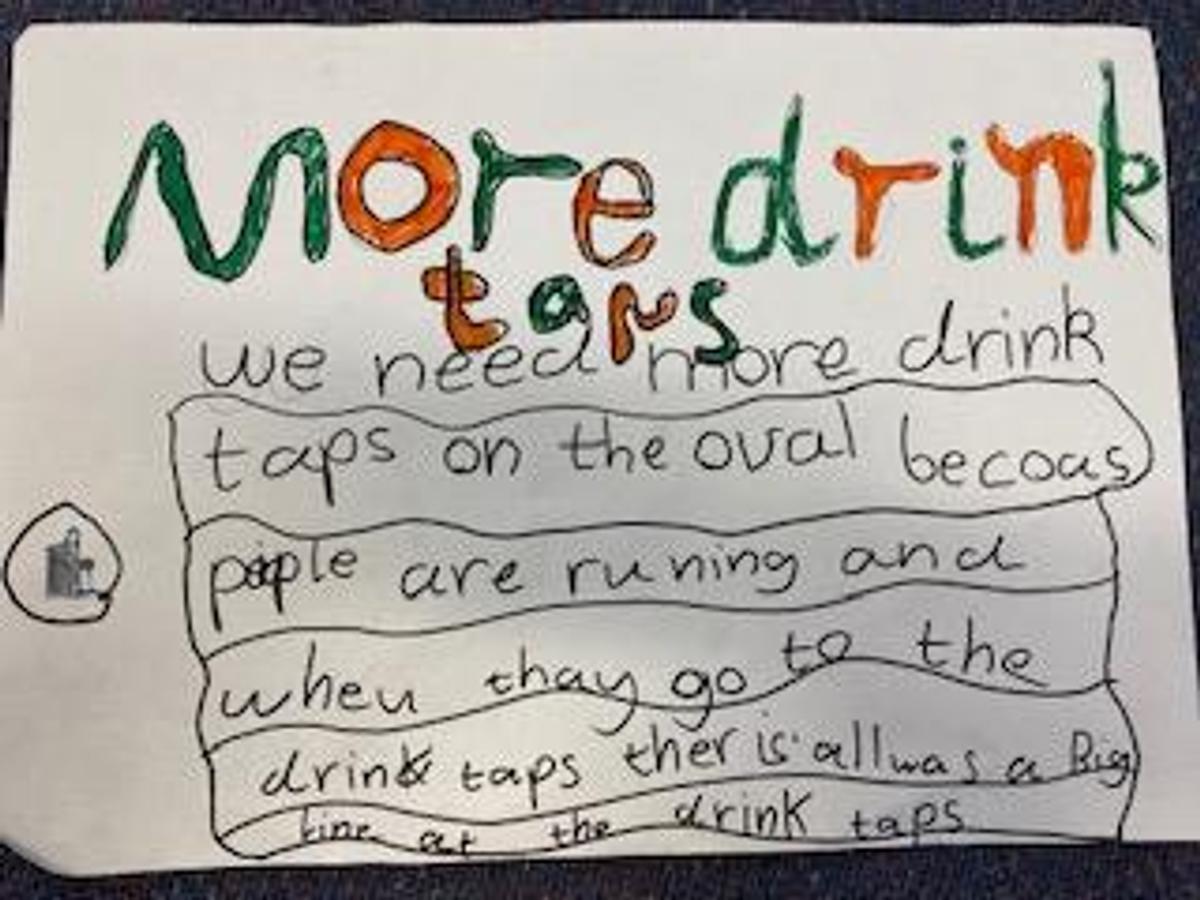 More drink
taps
we need more drink
taps on the oval becoas
piople are runing and
when thay go to the
drink taps ther is allwas a Big
line at the drink taps